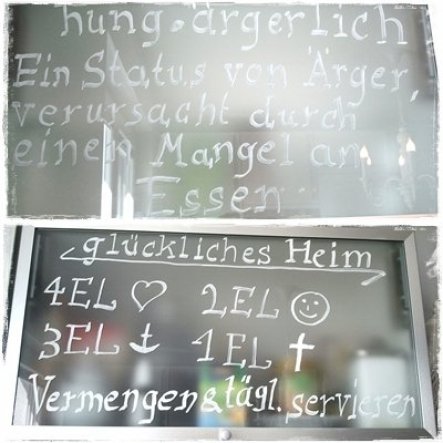 hung.ärgerlich
Ein Status von Ärger,
verursacht durch
einen Mangel an
Essen
glückliches Heim
4EL ♡ 2EL ☺
3EL ⚓ 1EL ✝
Vermengen & tägl. servieren